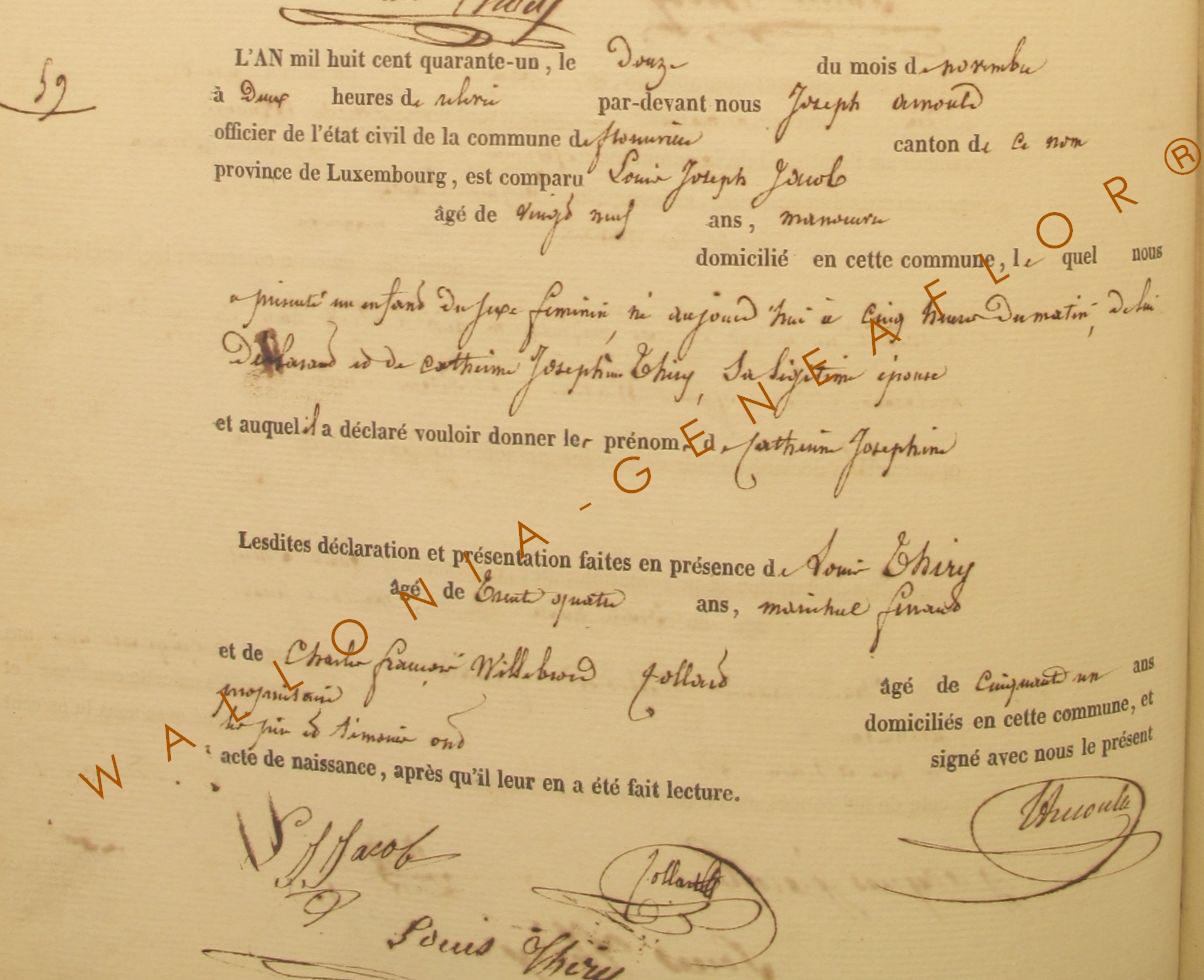 59
L'AN mil huit cent quarante-un, le Douze du mois de novembre
à Deux heures de relevée par-devant nous Joseph Arnould
officier de l'état civil de la commune de canton de ce nom
province de Luxembourg, est comparu Louis Joseph Jacob
âgé de vingt neuf ans, manoeuvre
domicilié en cette commune, le quel nous
a présenté un enfant du sexe feminin, né aujourd'hui à Cinq heures du matin, de lui
Déclarant et de Catherine Josephine Thiry, Sa Légitime épouse
et auquel il a déclaré vouloir donner les prénoms de Catherine Josephine
Lesdites déclaration et présentation faites en présence de Louis Thiry
âgé de Trente quatre ans, maréchal ferrant
et de Charles françois Willebrord Collard âgé de Cinquante un ans
propriétaire domiciliés en cette commune, et
les père et témoins ont signé avec nous le présent
acte de naissance, après qu'il leur en a été fait lecture.
L J Jacob
Collard
Louis Thiry
WALLONIA-GENEAFLOR®